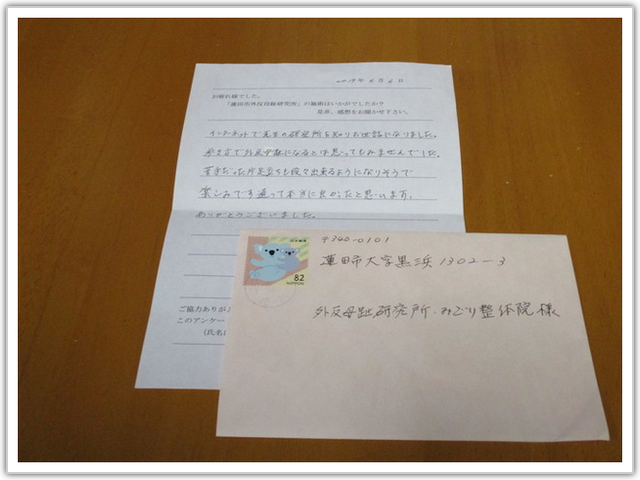 2019年6月6日
お疲れ様でした。
「蓮田市外反母趾研究所」の施術はいかがでしたか?
是非、感想をお聞かせ下さい。
インターネットで先生の研究所を知りお世話になりました。
歩き方で外反母趾になるとは思ってもみませんでした。
苦手だった片足立ちも段々出来るようになりそうで
楽しみです通って本当に良かったと思います。
ありがとうございました。
ご協力ありが
このアンケー
(氏名
日本郵便
82
NIPPON
〒340-0101
蓮田市大字黒浜1302-3
外反母趾研究所・みどり整体院様